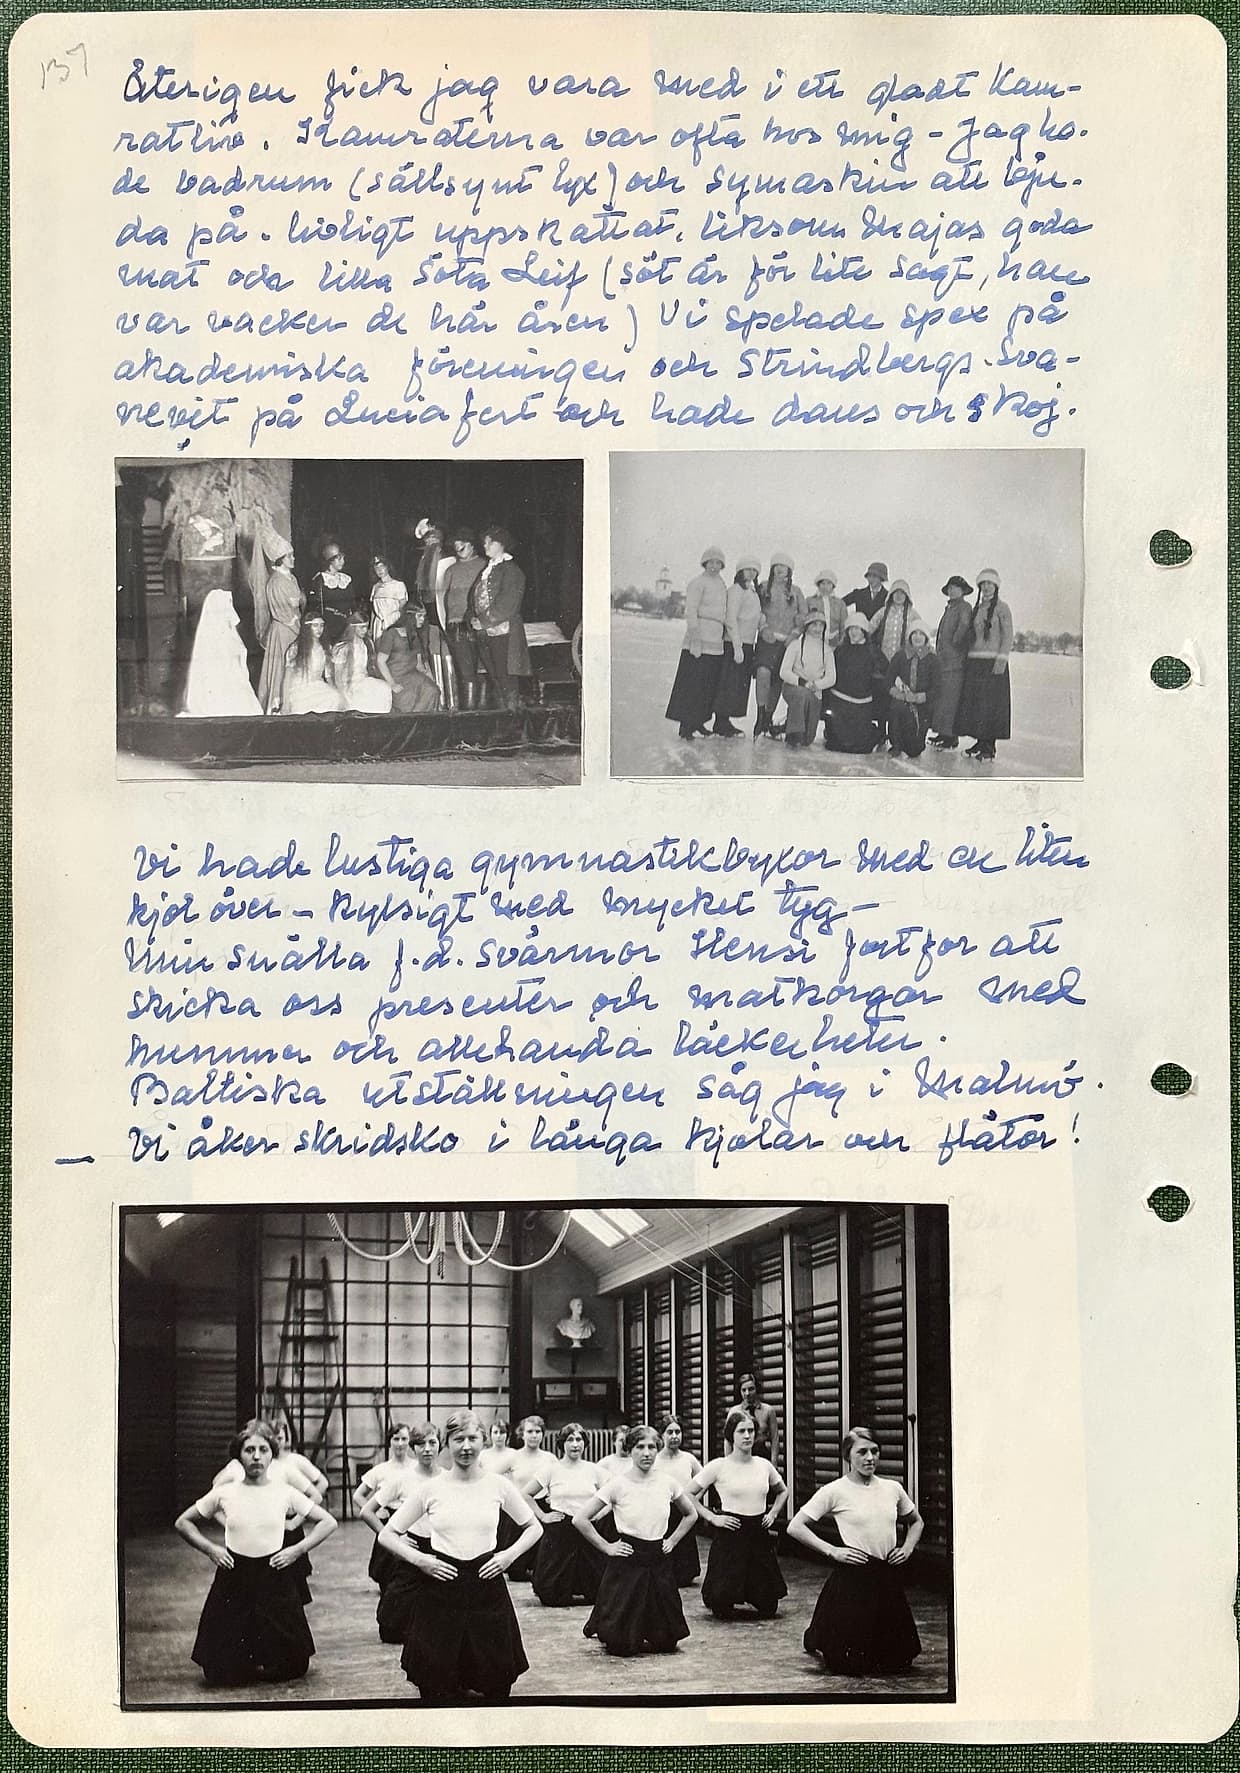 137
Återigen fick jag vara med i ett gladt Kam-
ratliv. Kamraterna var ofta hos mig - Jag ha-
de badrum (sällsynt lyx) och symaskin att bju-
da på. livligt uppskattat, liksom Majas goda
mat och lilla söta Leif (söt är för lite sagt, han
var vacker de här åren) Vi spelade spex på
akademiska föreningen och Strindbergs. Sva-
nevit på Luciafest och hade dans och skoj.
Vi hade lustiga gymnastikbyxor med en liten
kjol över - kylsigt med mycket tyg -
Min snälla f.d. Svärmor Hensi fortfor att
skicka oss presenter och matkorgar med
hummer och allehanda läckerheter.
Baltiska utställningen såg jag i Malmö.
- Vi åker skridsko i långa kjolar och flätor!